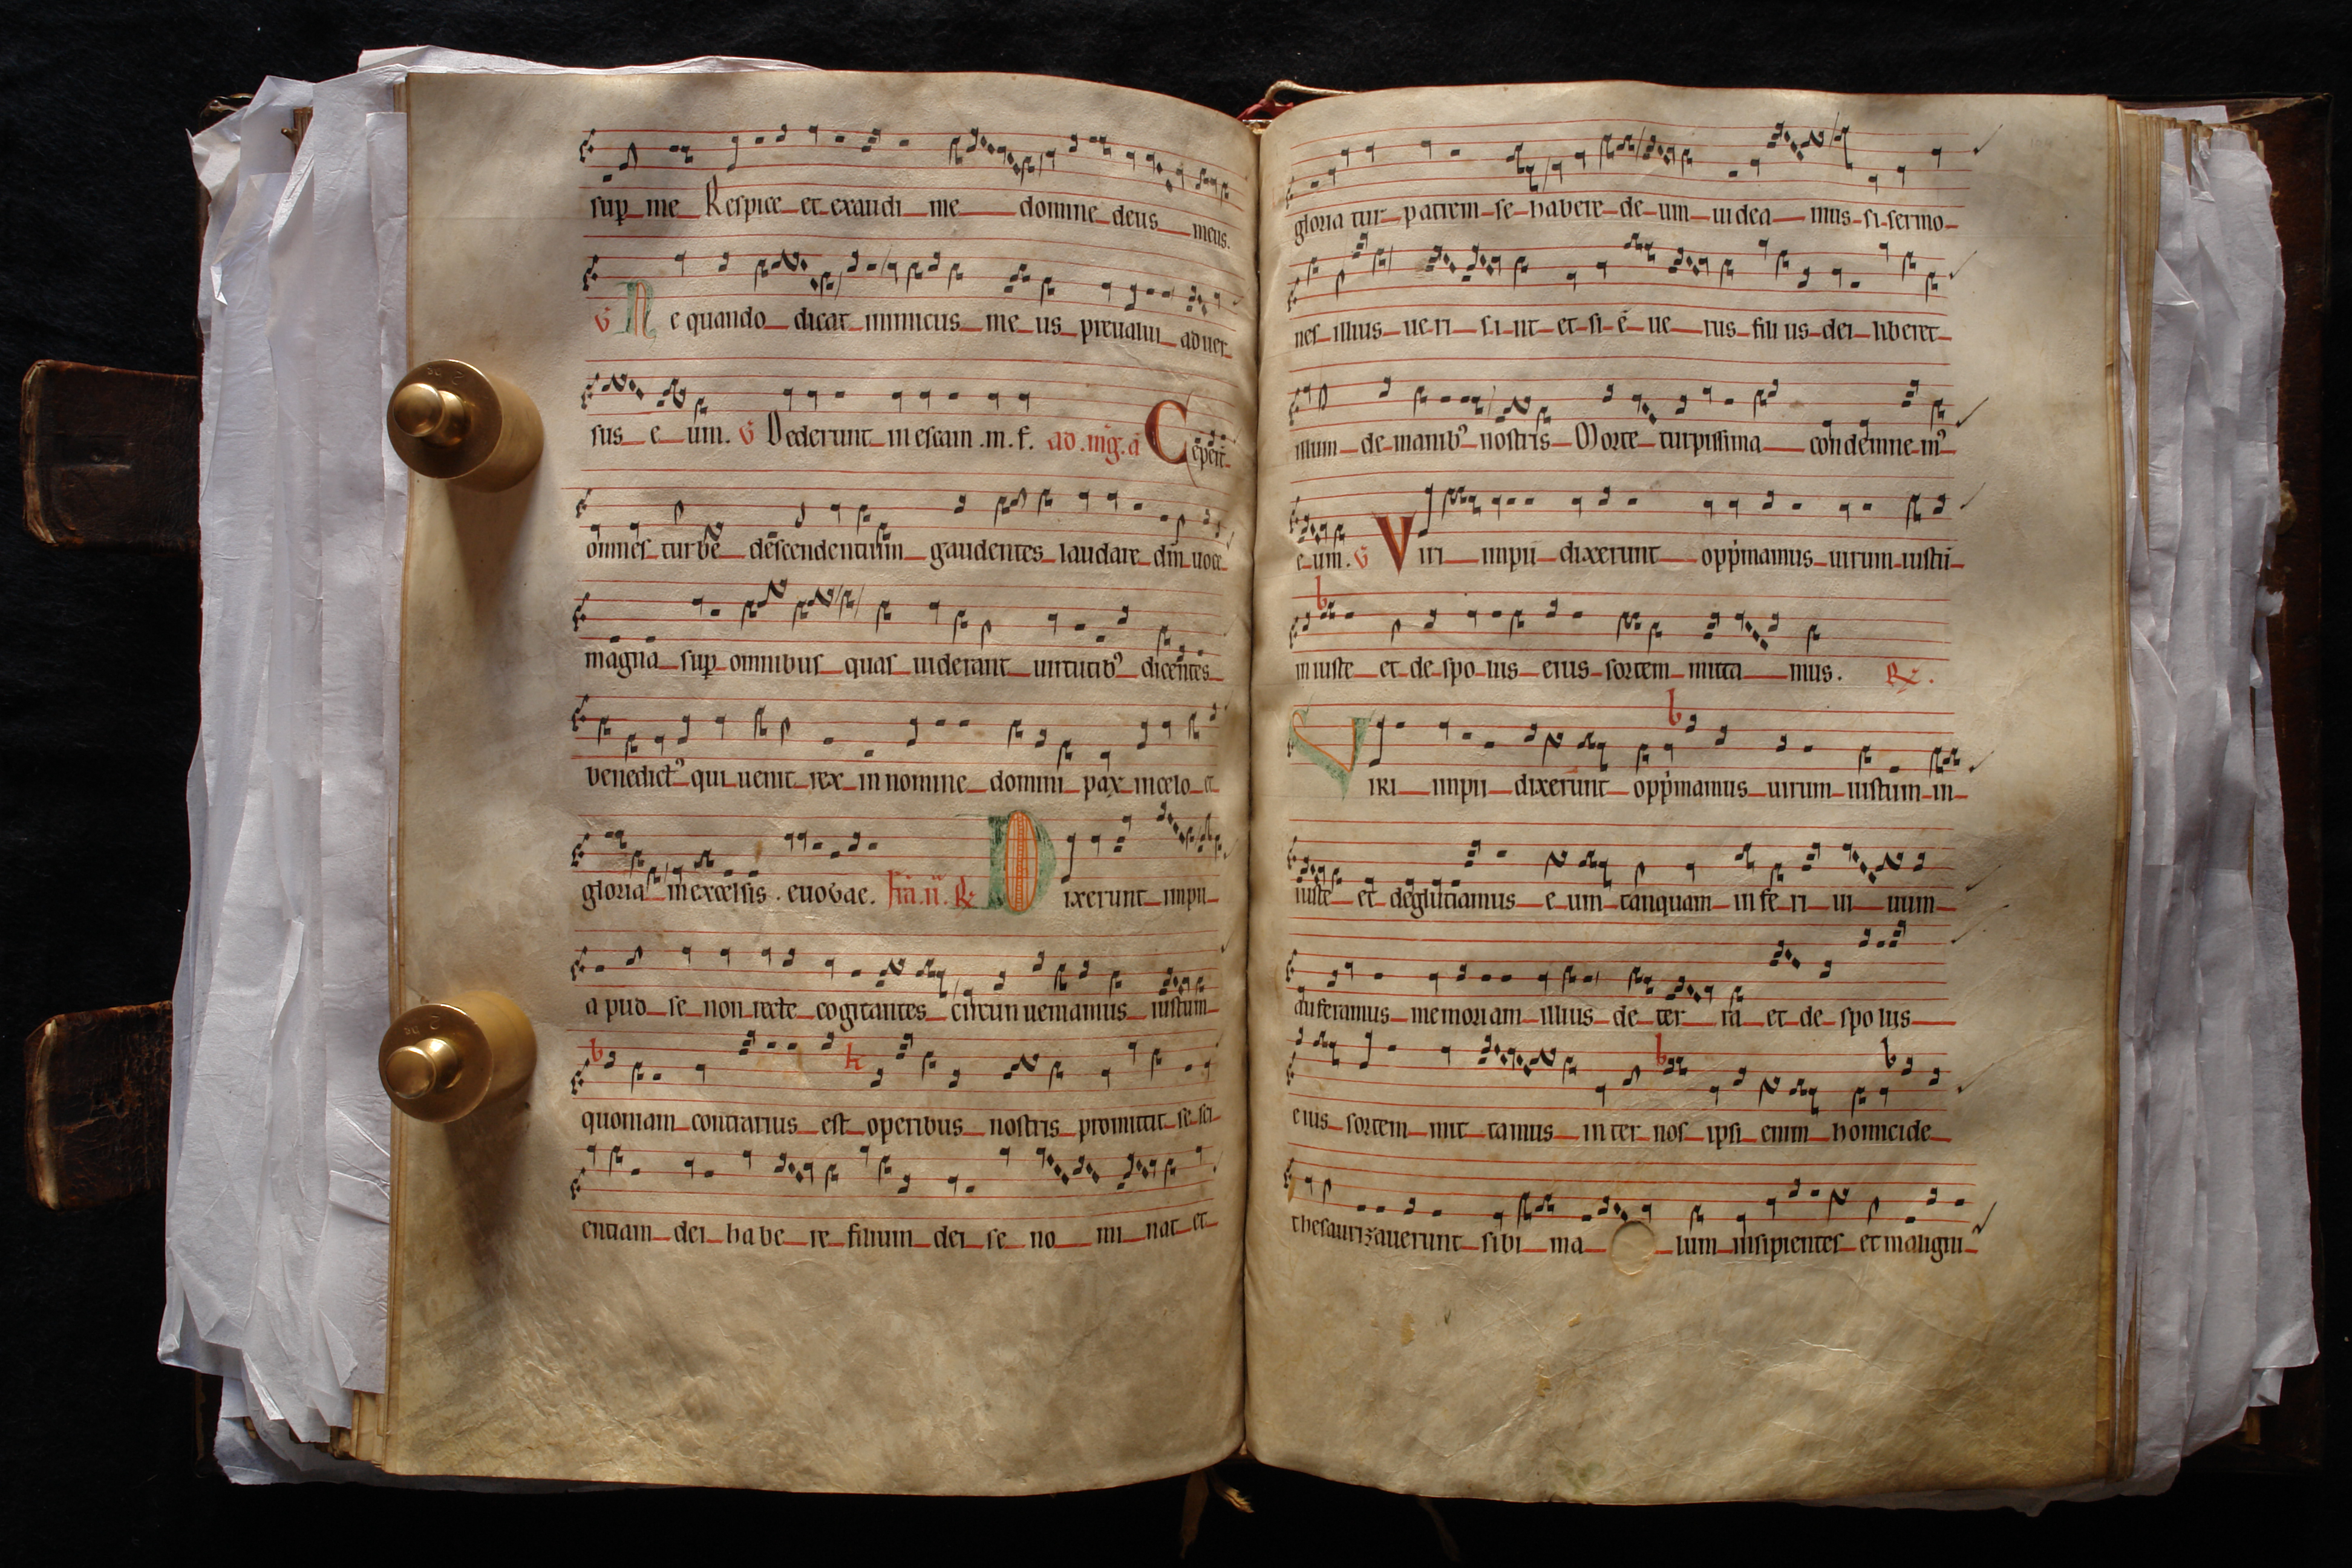 sup me Respice et exaudi me domine deus meus.
V Ne quando dicat inimicus meus preualui aduer
sus eum. V Dederunt in escam .m. f. ad .mag. a Ceperūt
omnes turbe descendentium gaudentes laudare dm̄ uoce
magna sup omnibus quas uiderant uirtutibꝰ dicentes
benedictꝰ qui uenit rex in nomine domini pax in celo et
gloria in excelsis . euouae. R Dixerunt impii
apud se non recte cogitantes circunueniamus iustum
b h
quoniam contrarius est operibus nostris promittit se sci
entiam dei habere filium dei se nominat et
gloriatur patrem se habere deum uideamus si sermo
nes illius ueri sint et si ē uerus filius dei liberet
illum de manibꝰ nostris Morte turpissima condemnemꝰ
eum. V Viri impii dixerunt opp̄mamus uirum iustū
b
iniuste et de spoliis eius sortem mittamus. R .
b
Viri impii dixerunt opp̄mamus uirum iustum in
iuste et deglutiamus eum tanquam inferi uiuum
auferamus memoriam illius de terra et de spoliis
b b
eius sortem mittamus inter nos ipsi enim homicide
thesaurizauerunt sibi malum insipientes et maligni